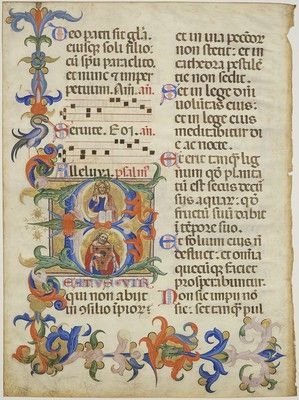 Deo patri sit gla
eiusq soli filio
cu spu paraclito
et nunc et imper
petuum. Am.
Seruite.
Alleluya. psalm
B
EATUS UIR
qui non abiit
in osilio ipior
et in uia peccator
non stetit: et in
cathedra pestile
tie non sedit.
Set in lege dni
uolutas eius:
et in lege eius
meditabitur di
e ac nocte.
Et erit tamq lig
num qd planta
tu est secus decur
sus aquar: qd
fructu suu dabit
i tepore suo.
Et folium eius n
defluet: et omnia
quecuq faciet
prosperabuntur.
Non sic impii no
sic: set tamq pul